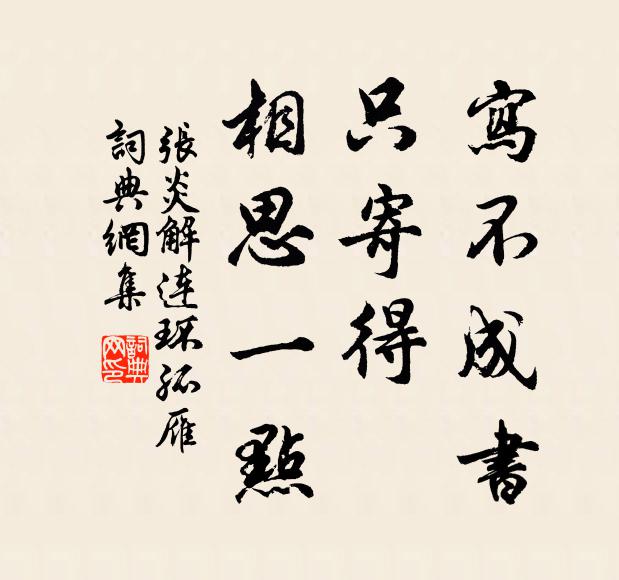 寫不成書
只寄得
相思一點
張炎解連環孤雁
詞典網集
詞典網印